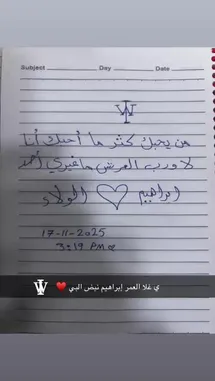 Subject Day Date
من يحبك كثر ما أحبك أنا
لا ورب العرش ما غيري أحد
ابراهيم ♡ الولاء
17-11-2025
3:19 PM
ي غلا العمر إبراهيم نبض البي ❤️